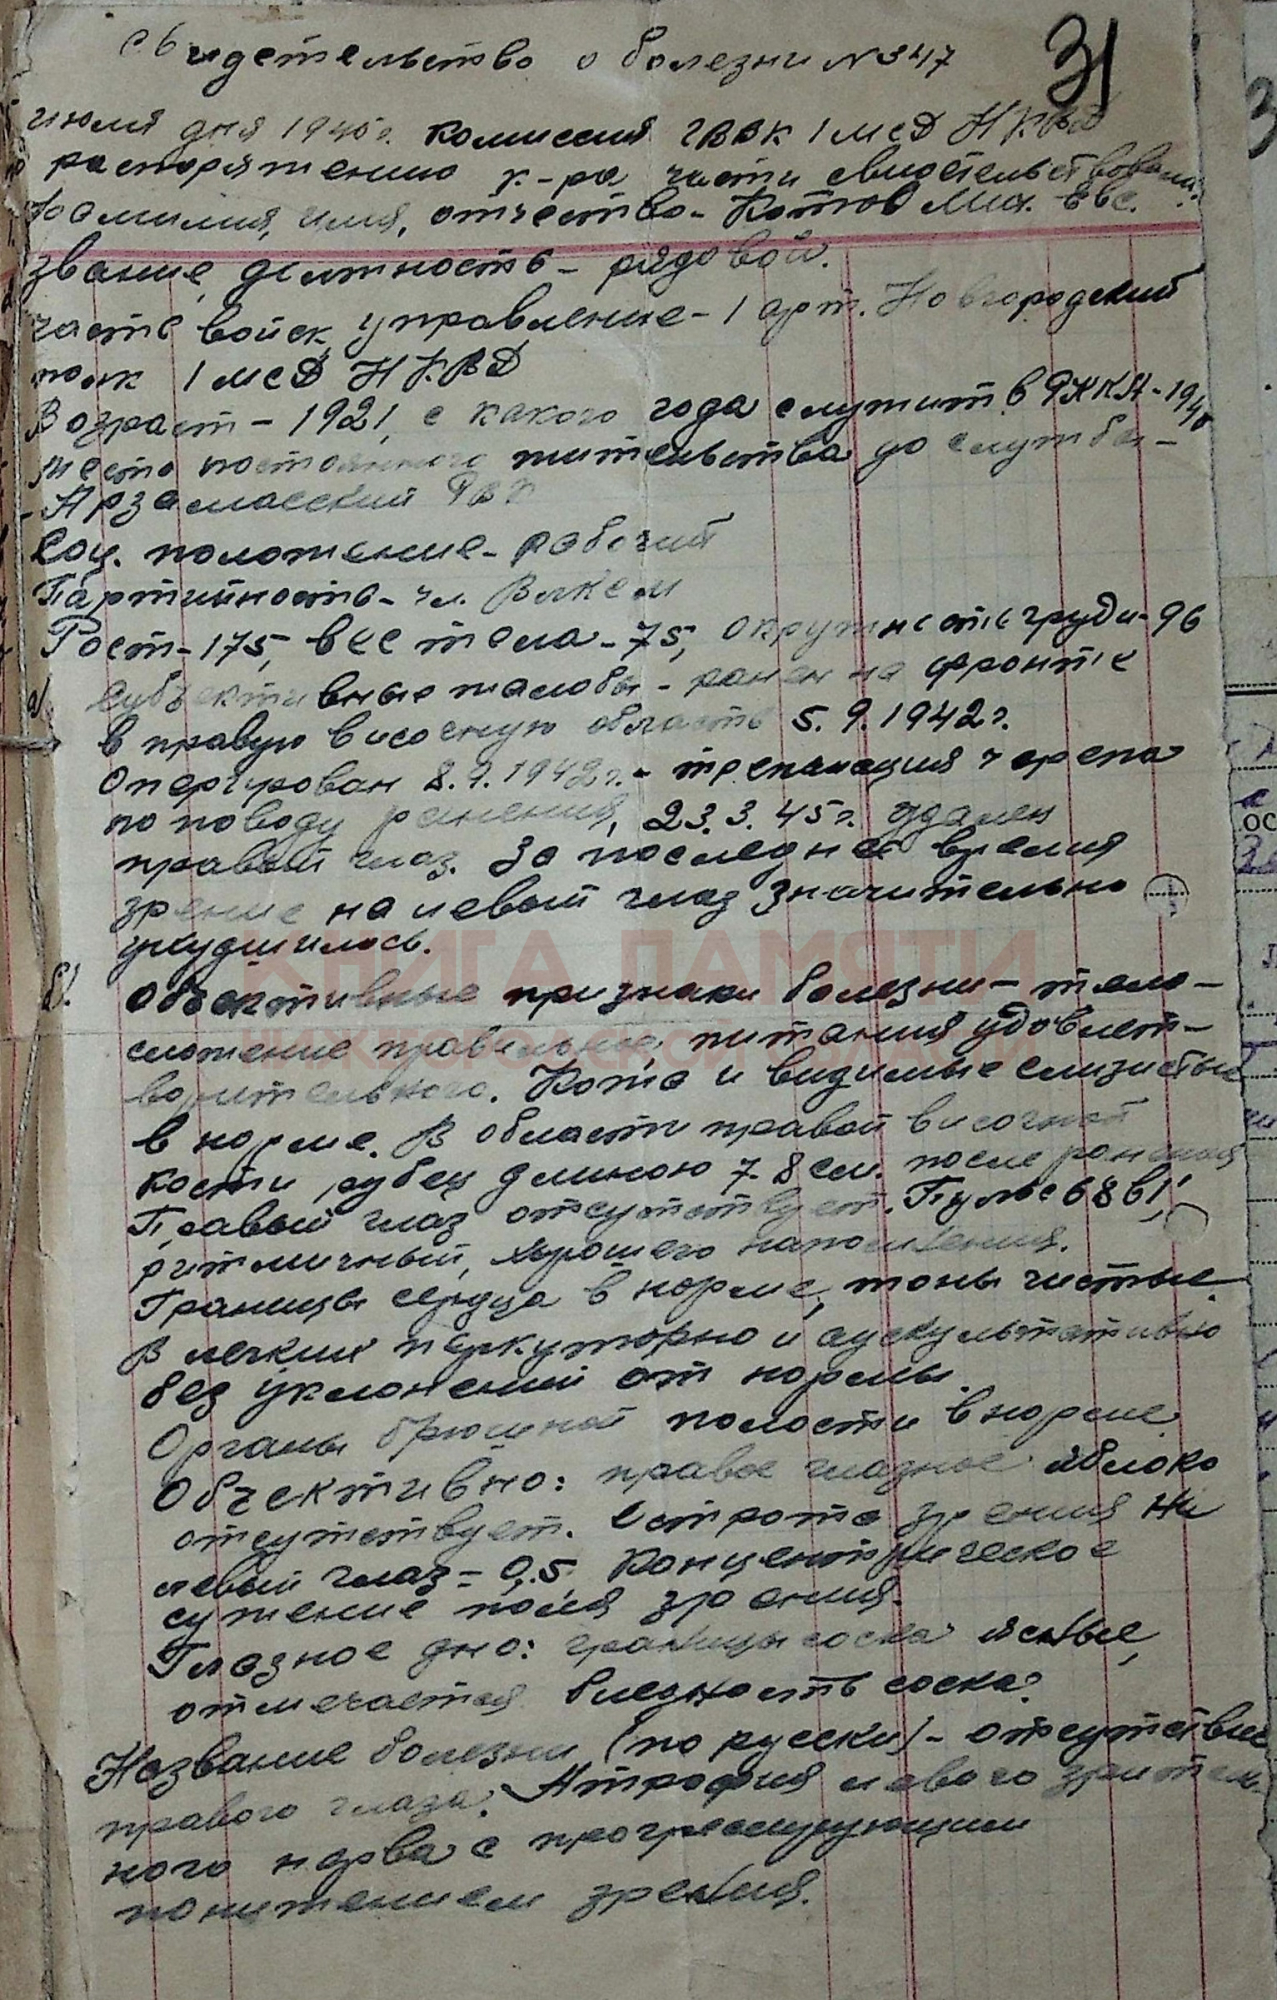 Свидетельство о болезни N 347
31
июля дня 1945 г. комиссия ГВВК 1 МСД НКВД
распоряжению к-ра части свидетельствован.
Фамилия, имя, отчество - Котов Мих. Евс.
звание, должность - рядовой.
часть войск, управление - 1 арт. Новгородский
полк 1 МСД НКВД
Возраст - 1921, с какого года служит в РККА - 1940
место постоянного жительства до службы -
- Арзамасский РВК
Соц. положение - рабочий
Партийность - чл. ВЛКСМ
Рост - 175, вес тела - 75, окружность груди - 96
а) Субъективные жалобы - ранен на фронте
в правую височную область 5.9.1942 г.
Оперирован 8.9.1942 г. - трепанация черепа
по поводу ранения, 23.3.45 г. удален
правый глаз. За последнее время
зрение на левый глаз значительно
ухудшилось.
КНИГА ПАМЯТИ
НИЖЕГОРОДСКОЙ ОБЛАСТИ
б) Объективные признаки болезни - тело-
сложение правильное, питания удовлет-
ворительного. Кожа и видимые слизистые
в норме. В области правой височной
кости рубец длиною 7-8 см. после ранения
Правый глаз отсутствует. Пульс 68 в 1',
ритмичный, хорошего наполнения.
Границы сердца в норме, тоны чистые.
В легких перкуторно и аускультативно
без уклонений от нормы.
Органы брюшной полости в норме
Объективно: правое глазное яблоко
отсутствует. Острота зрения на
левый глаз = 0,5. Концентрическое
сужение поля зрения.
Глазное дно: границы соска ясные,
отмечается бледность соска.
Название болезни (по русски) - отсутствие
правого глаза. Атрофия левого зритель-
ного нерва с прогрессирующим
понижением зрения.